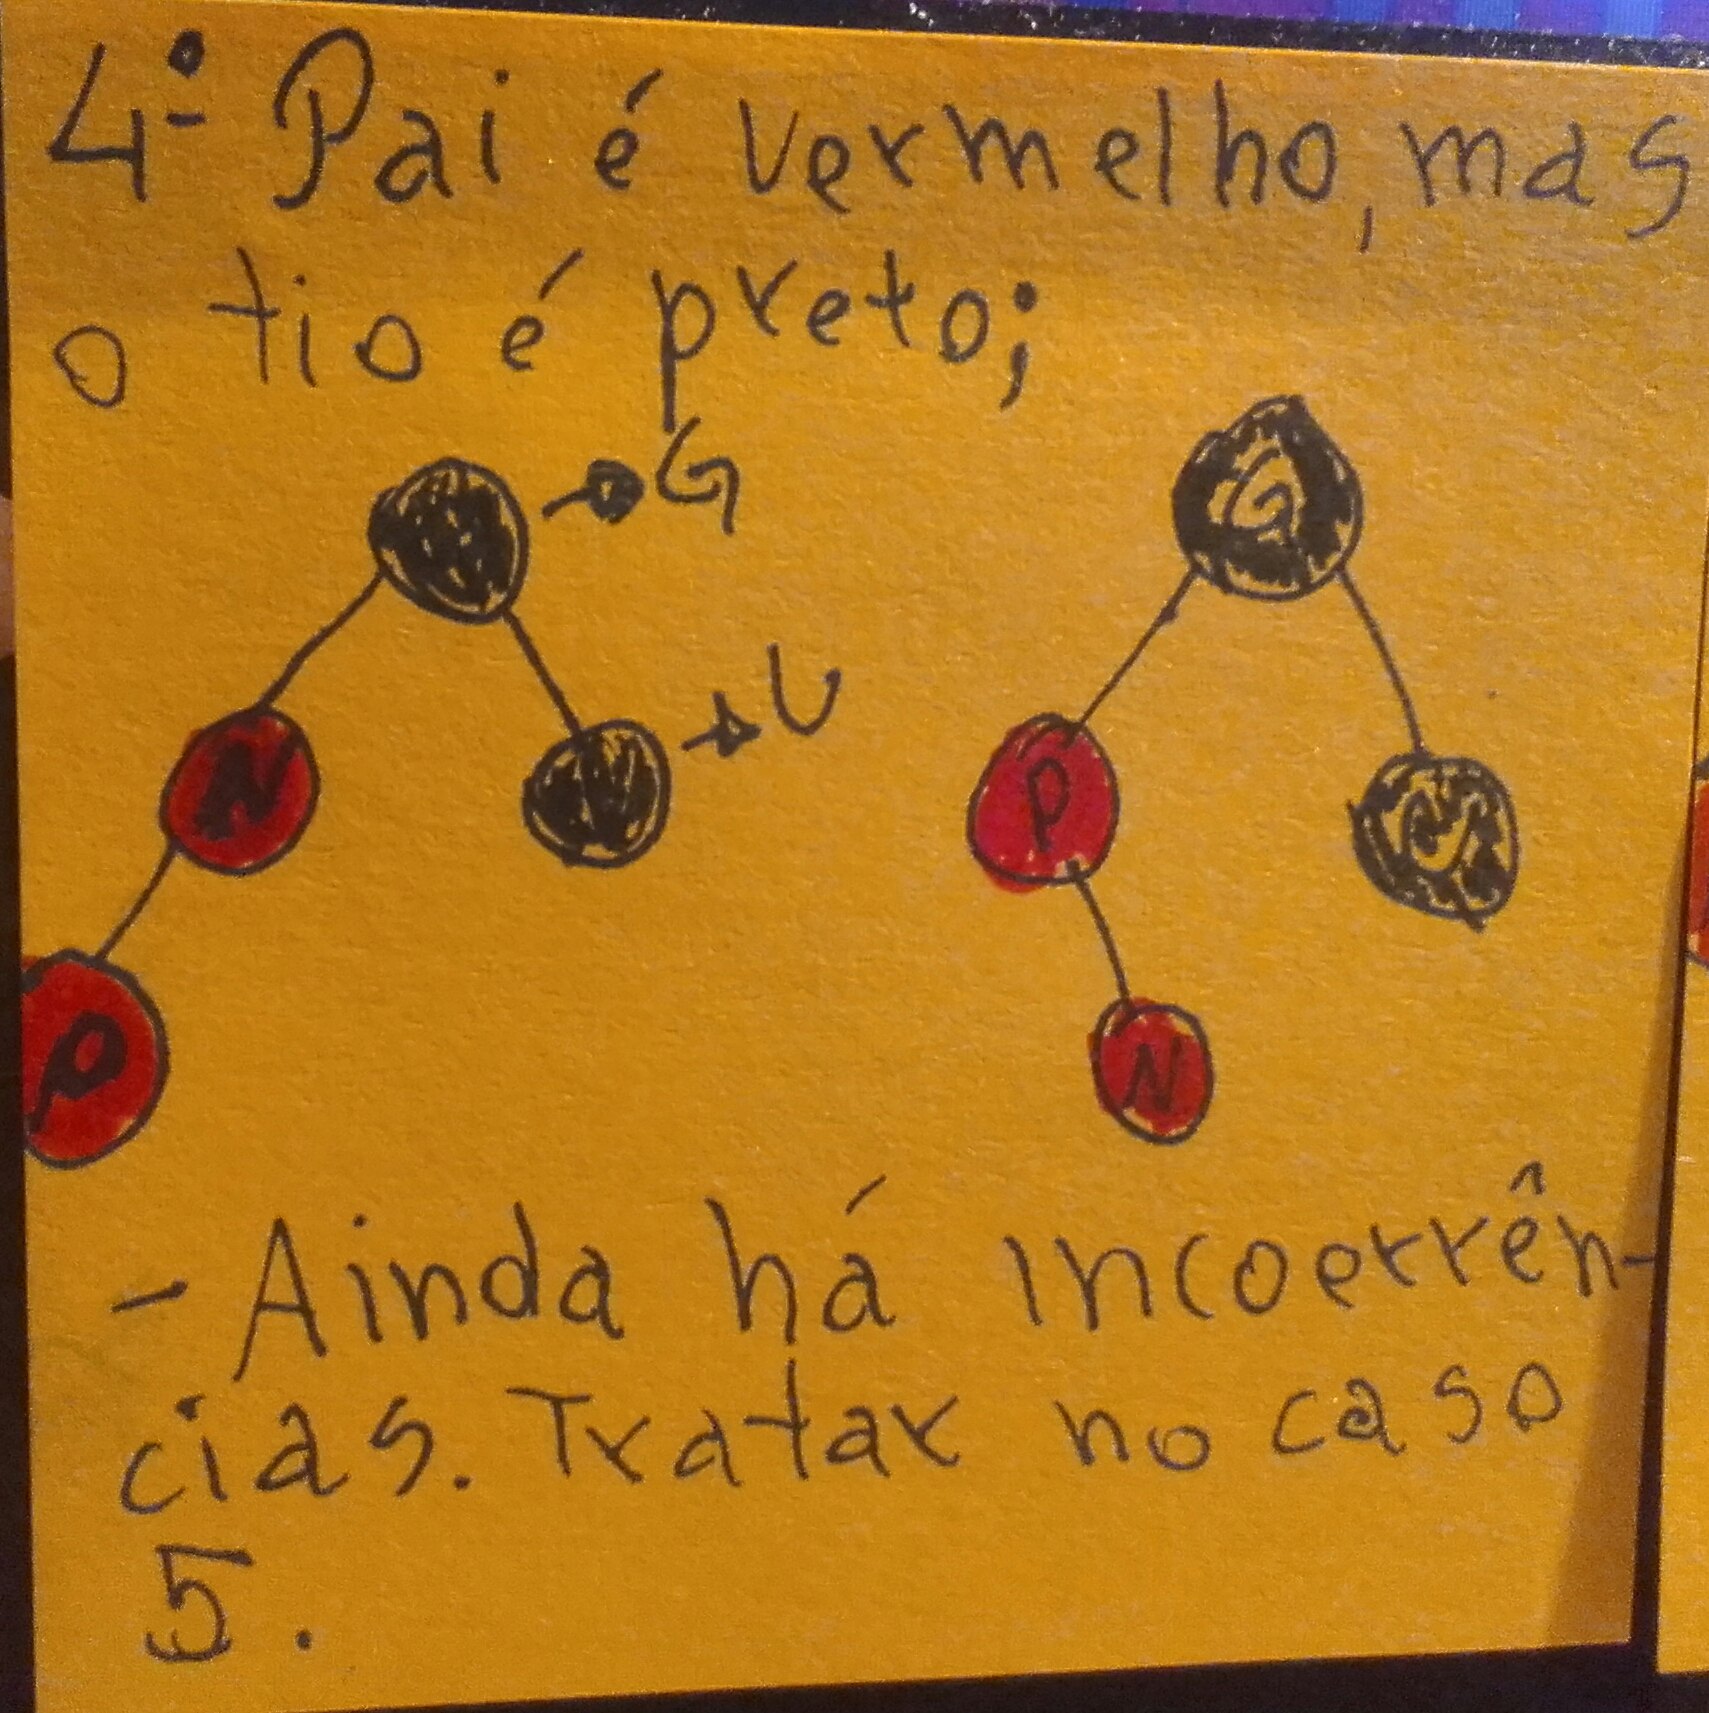 4º Pai é vermelho, mas
o tio é preto;
G
G
U
N
P
U
P
N
- Ainda há incoerrên-
cias. Tratar no caso
5.